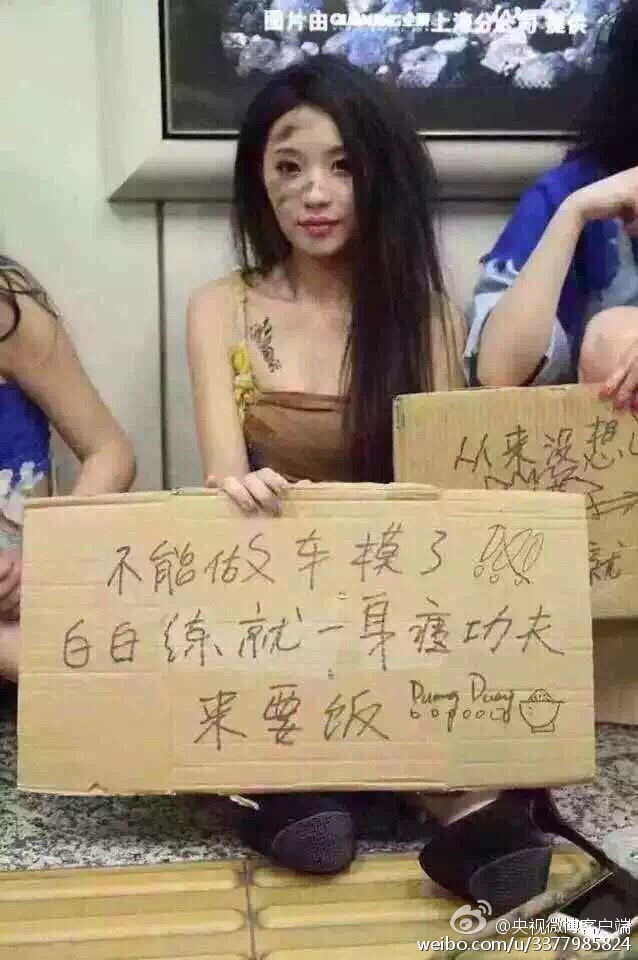 图片由 上海分公司 提供
从来没想
就
不能做车模了
白白练就一身痩功夫
来要饭 Duang Duang
@央视微博客户端
weibo.com/u/3377985824